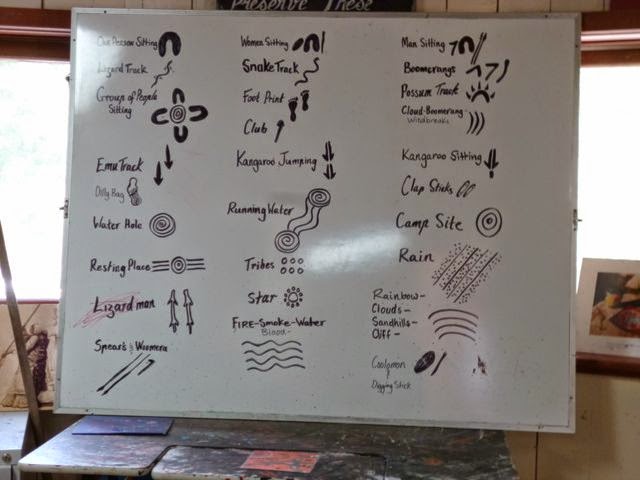 Preserve These
One Person Sitting
Lizard Track
Group of People
Sitting
Emu Track
Dilly Bag
Water Hole
Resting Place
Lizard man
Spears & Woomera
Women Sitting
Snake Track
Foot Print
Club
Kangaroo Jumping
Running Water
Tribes
Star
FIRE-Smoke-Water
Blood-
Man Sitting
Boomerangs
Possum Track
Cloud-Boomerang
Windbreaks
Kangaroo Sitting
Clap Sticks
Camp Site
Rain
Rainbow-
Clouds-
Sandhills-
Cliff-
Coolamon
Digging Stick